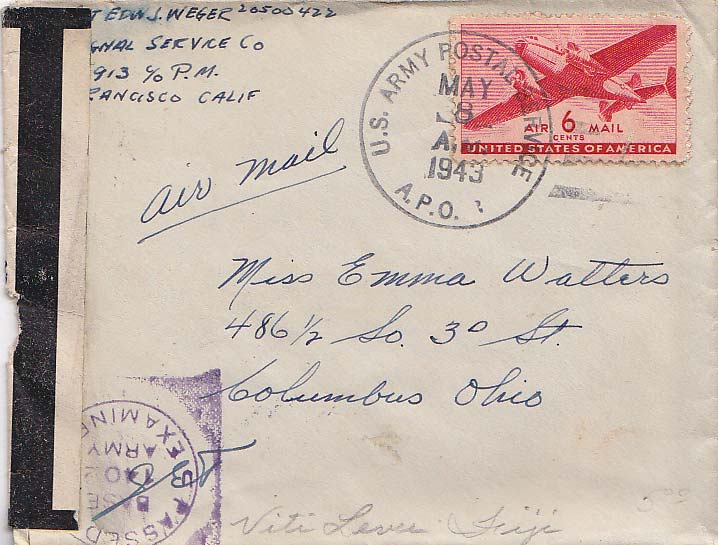 T EDW J. WEGER 20500422
GNAL SERVICE Co
913 c/o P.M.
RANCISCO CALIF
U.S. ARMY POSTAL SERVICE
MAY
8
A.
1943
A.P.O.
AIR 6 MAIL
CENTS
UNITED STATES OF AMERICA
air mail
Miss Emma Watters
486½ So. 3º St.
Columbus Ohio
PASSED BY
BASE
ARMY
EXAMINE
Viti Levu Fiji
5.00